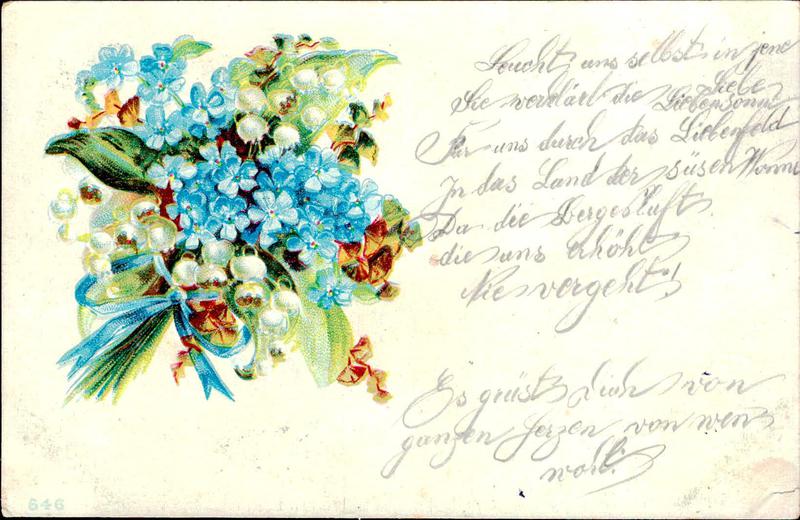 Leucht uns selbst in jene
Liebe
Sie verklärt die Liebensonn
Für uns durch das Liebenfeld
In das Land der süsen Wonne
Da die Bergesluft
die uns erhöht
Nie vergeht!
Es grüst Dich von
ganzen Herzen von wen
wohl?
646